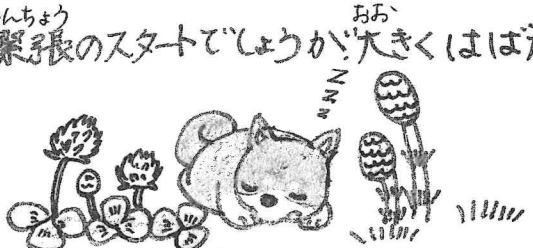 んちょう おお
緊張のスタートでしょうが、大きくはば
zzzz